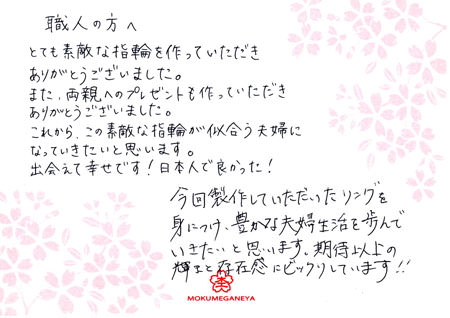 職人の方へ
とても素敵な指輪を作っていただき
ありがとうございました。
また、両親へのプレゼントも作っていただき
ありがとうございました。
これから、この素敵な指輪が似合う夫婦に
なっていきたいと思います。
出会えて幸せです！日本人で良かった！
今回製作していただいたリングを
身につけ、豊かな夫婦生活を歩んで
いきたいと思います。期待以上の
輝きと存在感にビックリしています!!
MOKUMEGANEYA